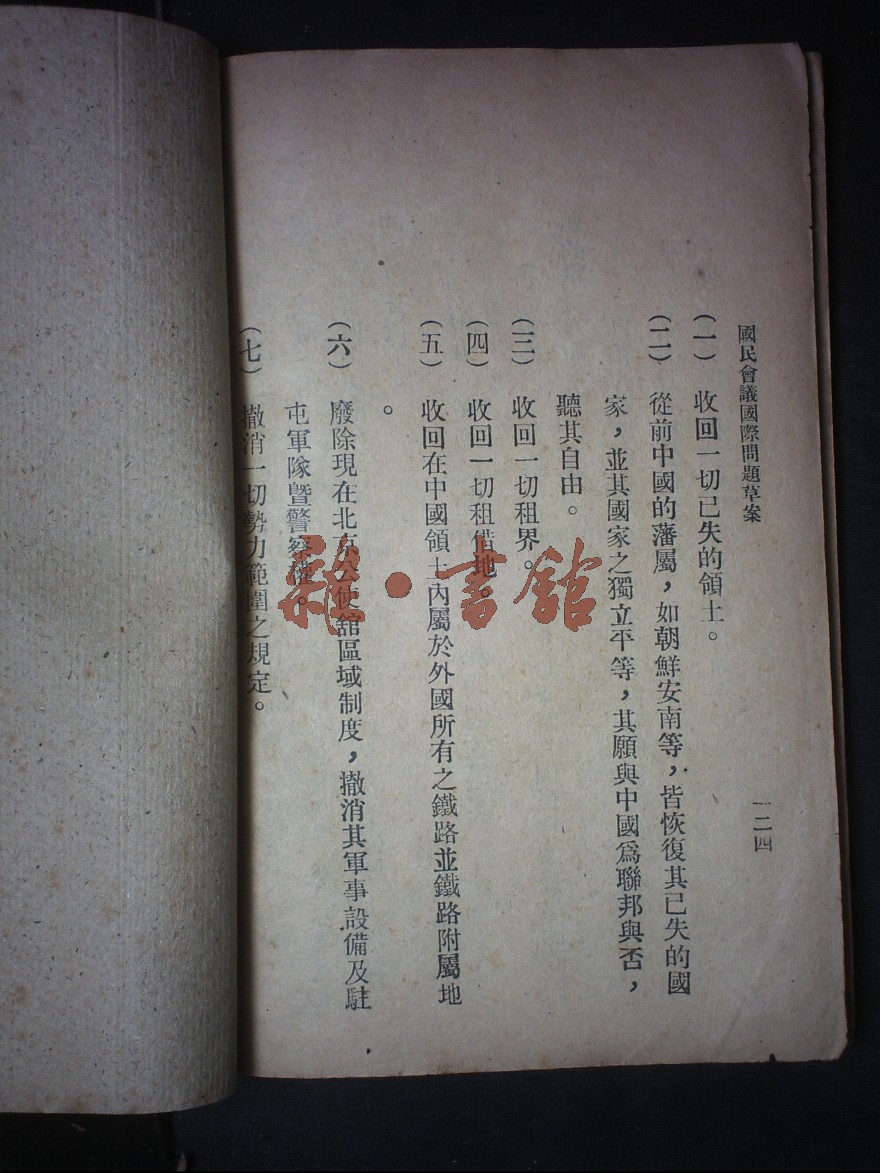 國民會議國際問題草案
一二四
(一) 收回一切已失的領土。
(二) 從前中國的藩屬，如朝鮮安南等，皆恢復其已失的國
家，並其國家之獨立平等，其願與中國爲聯邦與否，
聽其自由。
(三) 收回一切租界。
(四) 收回一切租借地。
(五) 收回在中國領土內屬於外國所有之鐵路並鐵路附屬地
。
(六) 廢除現在北京公使舘區域制度，撤消其軍事設備及駐
屯軍隊暨警察權。
(七) 撤消一切勢力範圍之規定。
雜·書舘